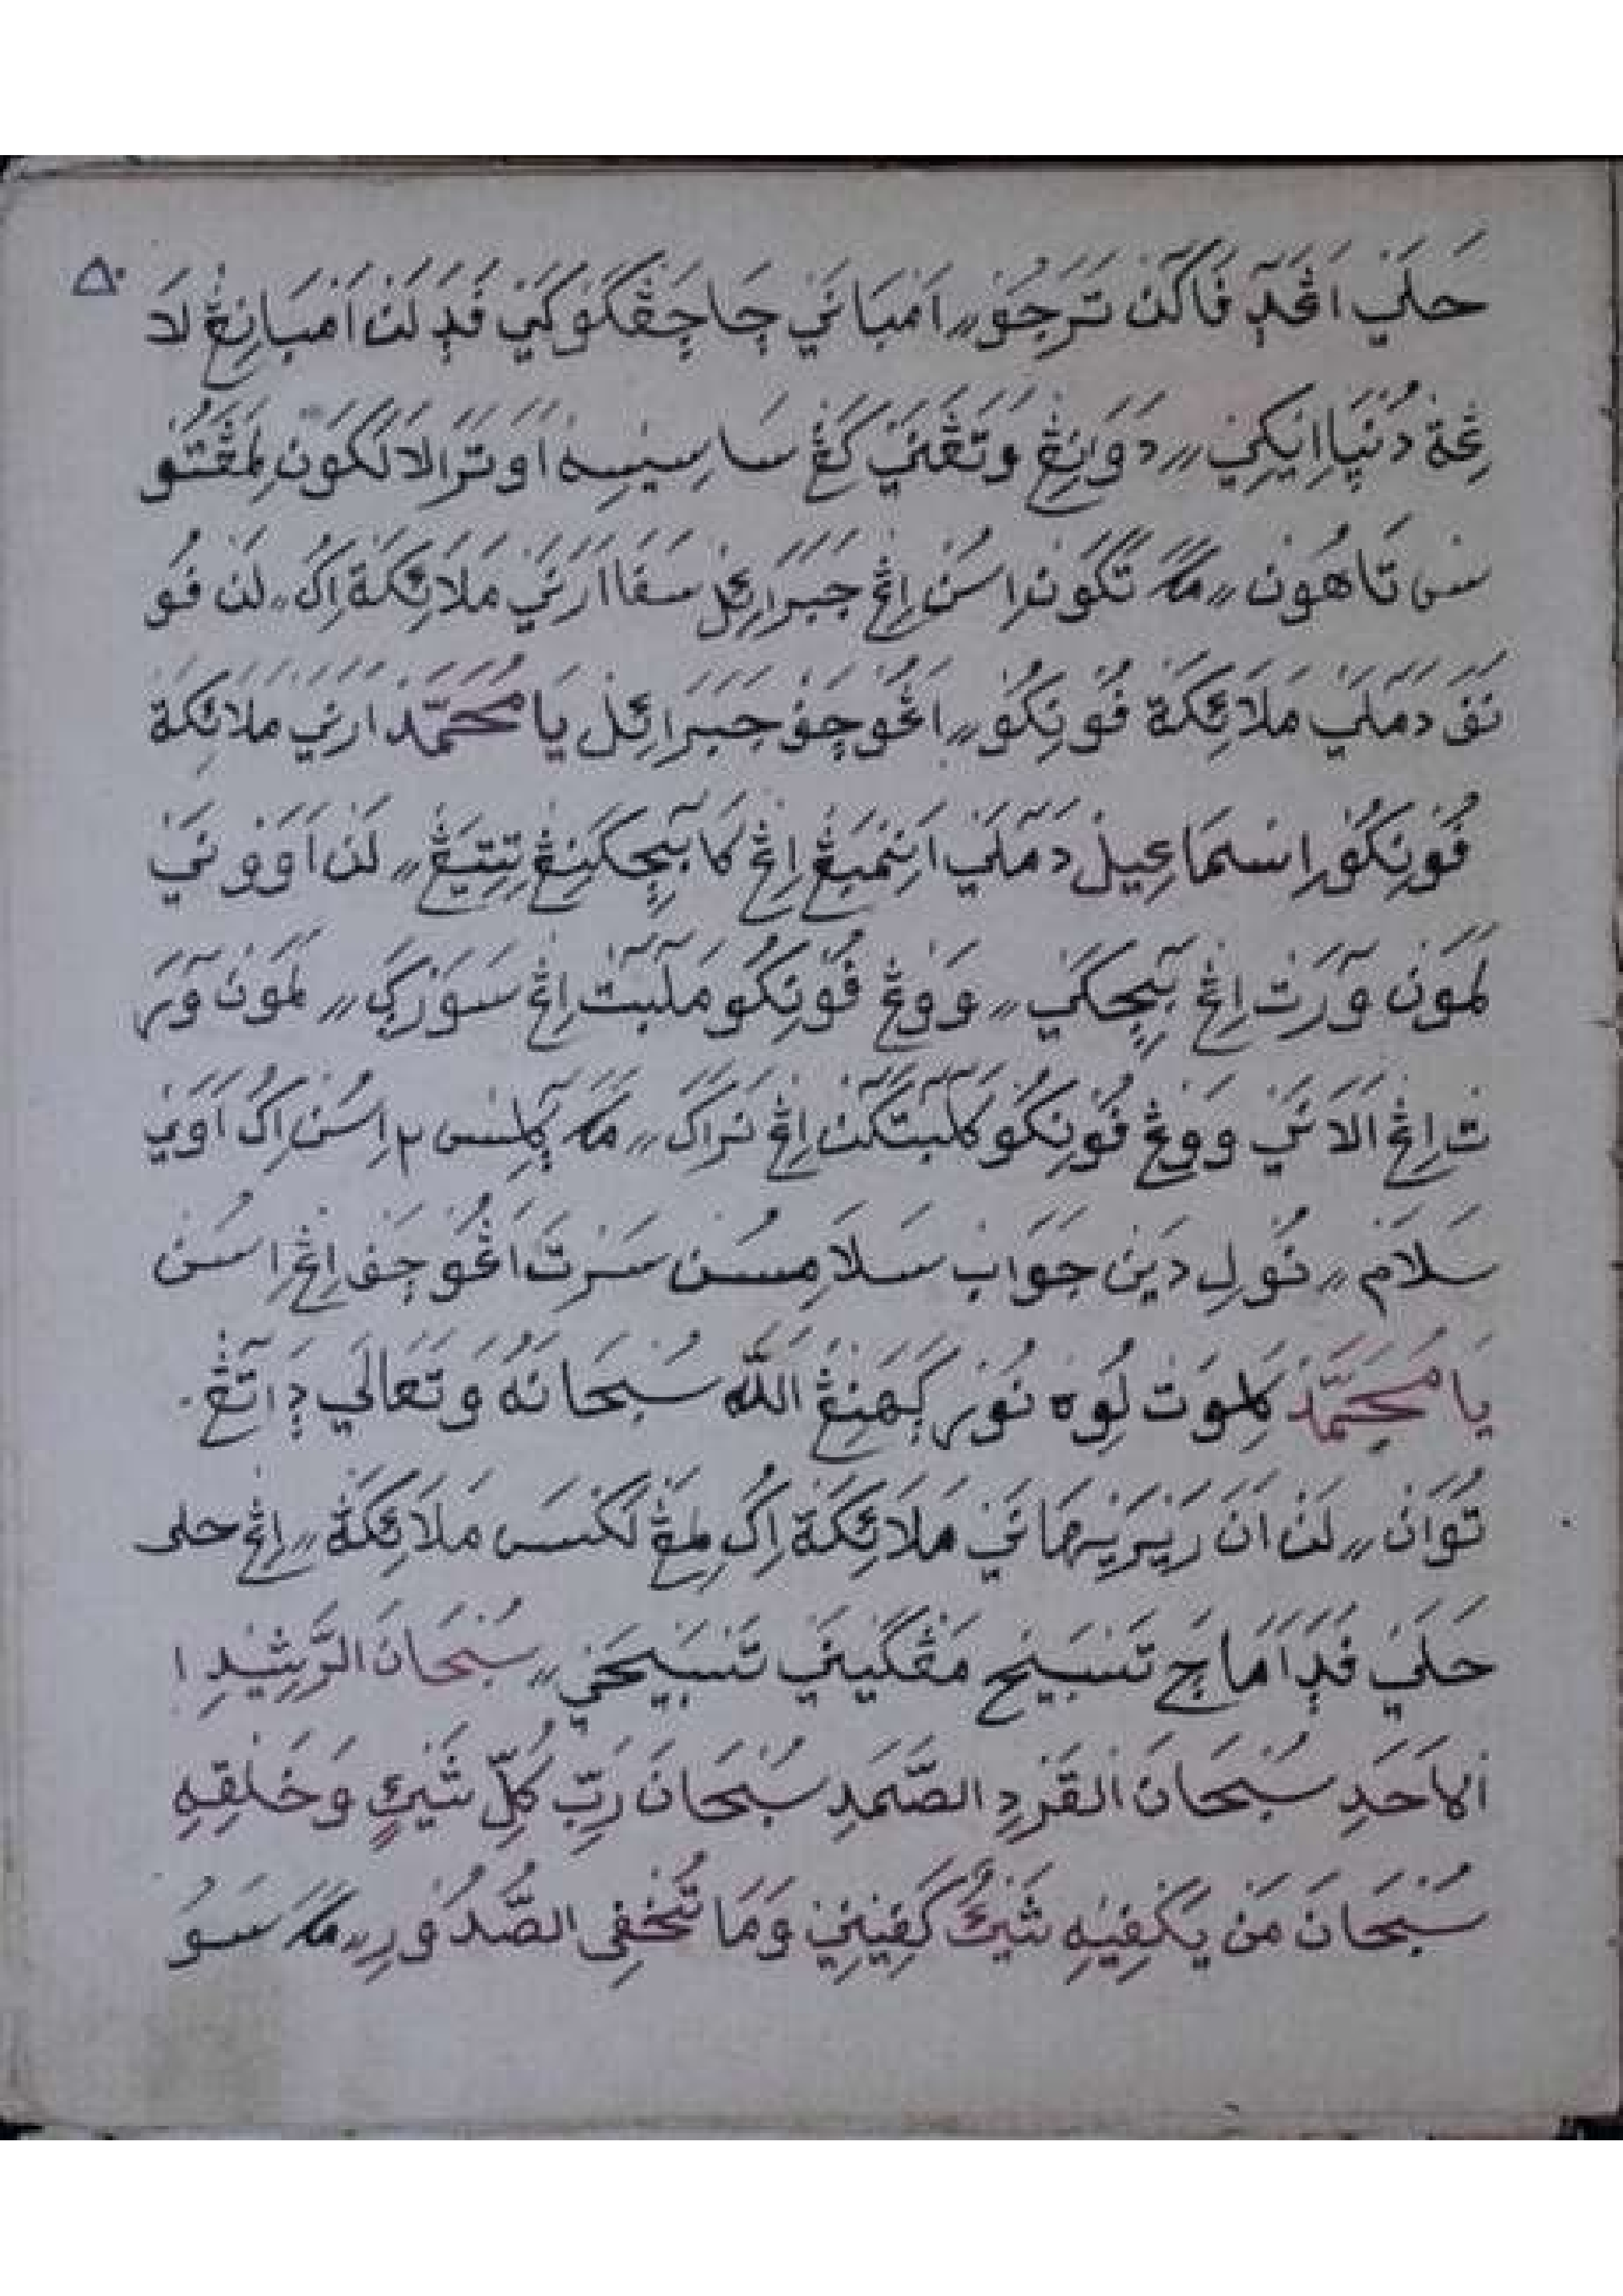 ٥٠
حَلَيْ اَڠْدٓ فَاكٓنْ تَرَجُوْ ۝ اَمْبَانَيْ چَاچَڠْكَوَكَيْ فَدٓ لَنْ اَمْبَانِڠْ لَا
دُنْيَا اِيْكِيْ دَوَانِڠْ وَتَڠَنَيْ كَڠْ سَاسِيْسِهْ اَوَتَرَا لَالَكَوْنْ لِمَڠَتُوْ
سْ تَاهُوْنْ مَكَ تَكَوْنْ اِسُنْ اِڠْ جَبَرَائِلْ سَفَا اَرَنَيْ مَلَائِكَةْ اِكُ لَنْ فُو
نَفَ دَمَلَيْ مَلَائِكَةْ فُوْنِكُوْ اَڠُوْچَفْ جَبَرَائِلْ يَا مُحَمَّدْ اَرَنَيْ مَلَائِكَةْ
فُوْنِكُوْ اِسْمَاعِيلْ دَمَلَيْ اَنِمْبَڠْ اِڠْ كَابٓچِكَنِڠْ تِتِيَڠْ لَنْ اَوَوْنَيْ
لَمَوْنْ وٓرَتْ اِڠْ بٓچِكَيْ وَوڠْ فُوْنِكُوْ مَلٓبٓتْ اِڠْ سَوَرْكَ لَمَوْنْ وٓرَ
تْ اِڠْ اَلَانَيْ وَوْڠْ فُوْنِكُوْ كَلٓبٓتَكٓنْ اِڠْ نَرَاكَ مَكَ اِسُنْ اِكُ اَوَيْ
سَلَامْ نُوْلِ دَيْنْ جَوَابْ سَلَامِسُنْ سَرْتَ اَڠُوْچَفْ اِڠْ اِسُنْ
يَا مُحَمَّدْ كَلِمَوَتْ لُوِهْ نُوْرْ كَهَنِڠْ اَللّٰه سُبْحَانَهُ وَتَعَالَى دِ اٰتَڠْ
تُوَانْ لَنْ اَنَ مَلَائِكَةْ اِكُ لِمَڠْ لَكْسَ مَلَائِكَةْ اِڠْ حلى
حَلَيْ فَدَ اَمَاچَ تَسْبِيحْ مَڠْكَيْنَيْ تَسْبِيْحَيْ سُبْحَانَ الرَّشِيْدِ ا
اَلْاَحَدِ سُبْحَانَ الْفَرْدِ الصَّمَدِ سُبْحَانَ رَبِّ كُلِّ شَيْءٍ وَخَلْقِهِ
سُبْحَانَ مَنْ يَكْفِيْهِ شَيْءٌ كَفِيْنِيْ وَمَا تُخْفِى الصُّدُوْرِ مَكَ سَوُ